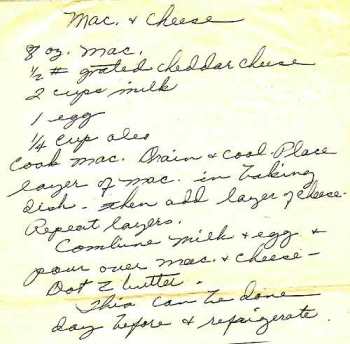 Mac. & Cheese
8 oz. mac.
½ # grated cheddar cheese
2 cups milk
1 egg
¼ cup oleo
Cook mac. Drain & cool. Place
layer of mac. in baking
dish - then add layer of cheese.
Repeat layers.
Combine milk & egg &
pour over mac. & cheese -
Dot c butter.
This can be done
day before & refrigerate.